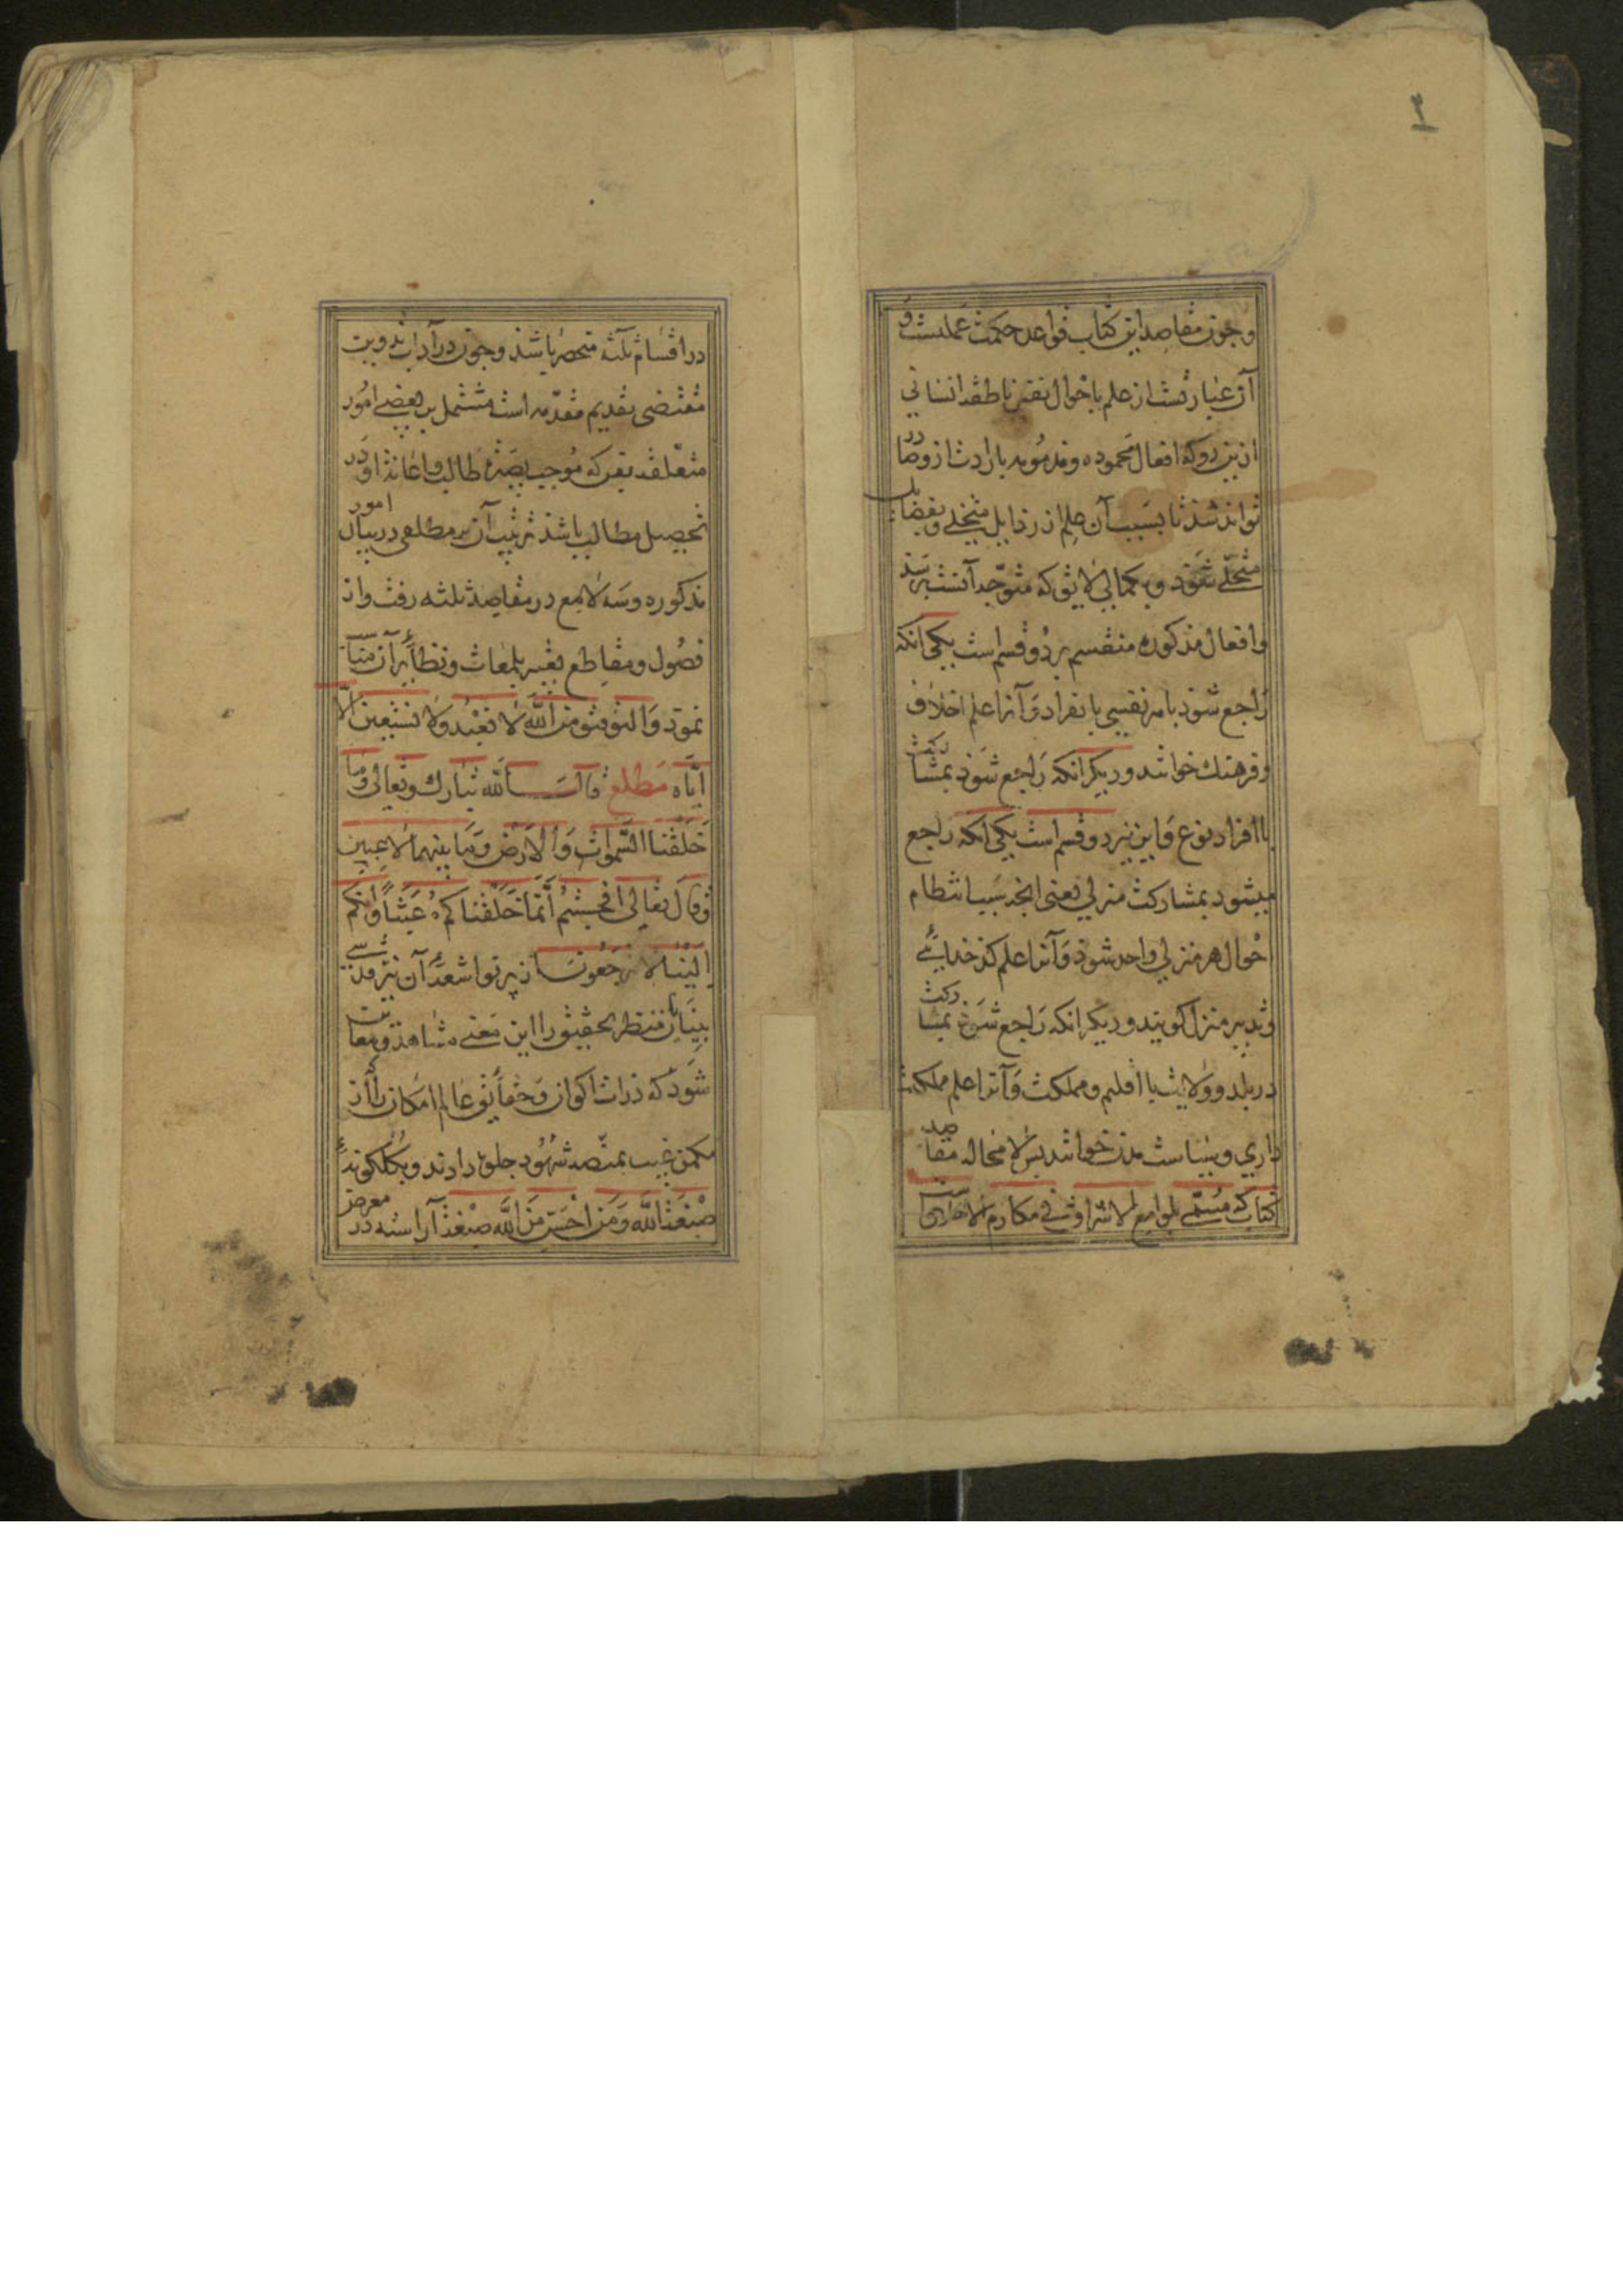 ۲
وچون مقاصد این کتاب قواعد حکمت عملیست و
آن عبارتست از علم باحوال نفس ناطقه انسانی
ازین رو که افعال محموده و مذمومه بارادت ازو صادر
تواند شد تا بسبب آن علم از رذایل متخلی و بفضایل
متحلی شود و بکمالی لایق که متوجه آنست برسد
وافعال مذکوره منقسم بر دو قسم است یکی آنکه
راجع شود بامر نفسی بانفراد و آنرا علم اخلاق
وفرهنك خوانند و دیکر انکه راجع شود بمشارکت
با افراد نوع و این نیز دو قسم است یکی انکه راجع
میشود بمشارکت منزلی یعنی انچه سبب انتظام
احوال هر منزلی واحد شود و آنرا علم کدخدایی
وتدبیر منزل کویند و دیکر انکه راجع شود بمشارکت
در بلد و ولایت یا اقلیم و مملکت و آنرا علم مملکت
داری و سیاست مدن خوانند پس لا محاله مقاصد
کتاب که مسمی بلوامع الاشراق فی مکارم الاخلاق است
در اقسام ثلثه منحصر باشد و چون در آداب تدوین
مقتضی تقدیم مقدمه است مشتمل بر بعضی امور
متعلقه بفن که موجب بصیرة طالب و اعانة او در
تحصیل مطالب باشد ترتیب آن بر مطلعی در بیان امور
مذکوره و سه لامع در مقاصد ثلثه رفت و از
فصول و مقاطع تعبیر بلمعات و نظایر آن مناسب
نمود والتوفیق من الله لا نعبد ولا نستعین الا
ایاه مطلع قال الله تبارك وتعالی وما
خلقنا السموات والارض وما بینهما لاعبین
وقال تعالی افحسبتم انما خلقناکم عبثا وانکم
الینا لا ترجعون از پرتو اشعه آن نیر قدسی
بینایان منظر تحقیق را این معنی مشاهد و معاین
شود که ذرات اکوان و حقایق عالم امکان را از
مکمن غیب بمنصه شهود جلوه دادند و بکلکونه
صبغة الله ومن احسن من الله صبغة آراسته در معرض